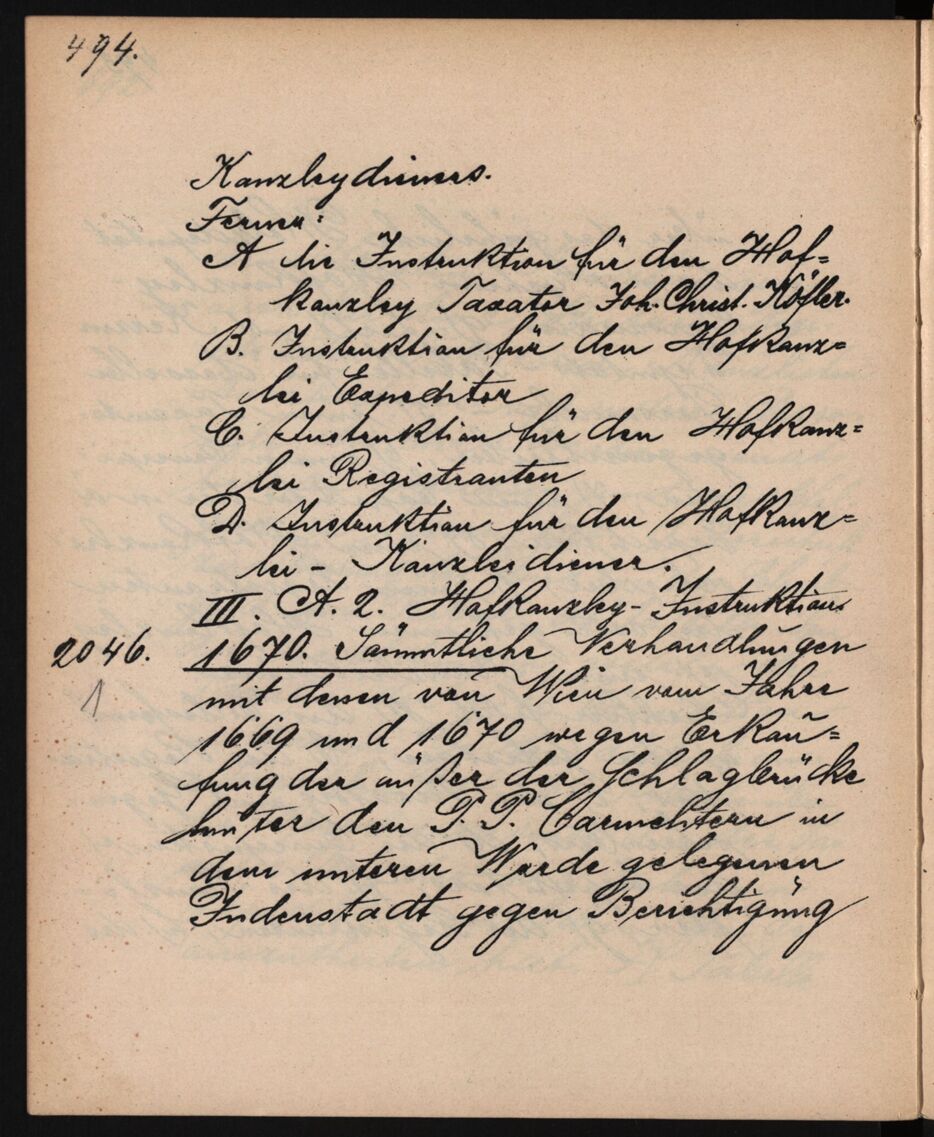 494.
Kanzleydieners.
Ferner:
A die Instruktion für den Hof=
kanzley Taxator Joh. Christ. Köfler.
B. Instruktion für den Hofkanz=
lei Expeditor
C. Instruktion für den Hofkanz=
lei Registranten
D. Instruktion für den Hofkanz=
lei - Kanzleidiener.
III. A. 2. Hofkanzley - Instruktion
2046. 1670. Sämmtliche Verhandlungen
1 mit denen von Wien vom Jahre
1669 und 1670 wegen Erkau=
fung der außer der Schlagbrücke
hinter den P. P. Carmelitern in
dem unteren Werde gelegenen
Judenstadt gegen Berichtigung